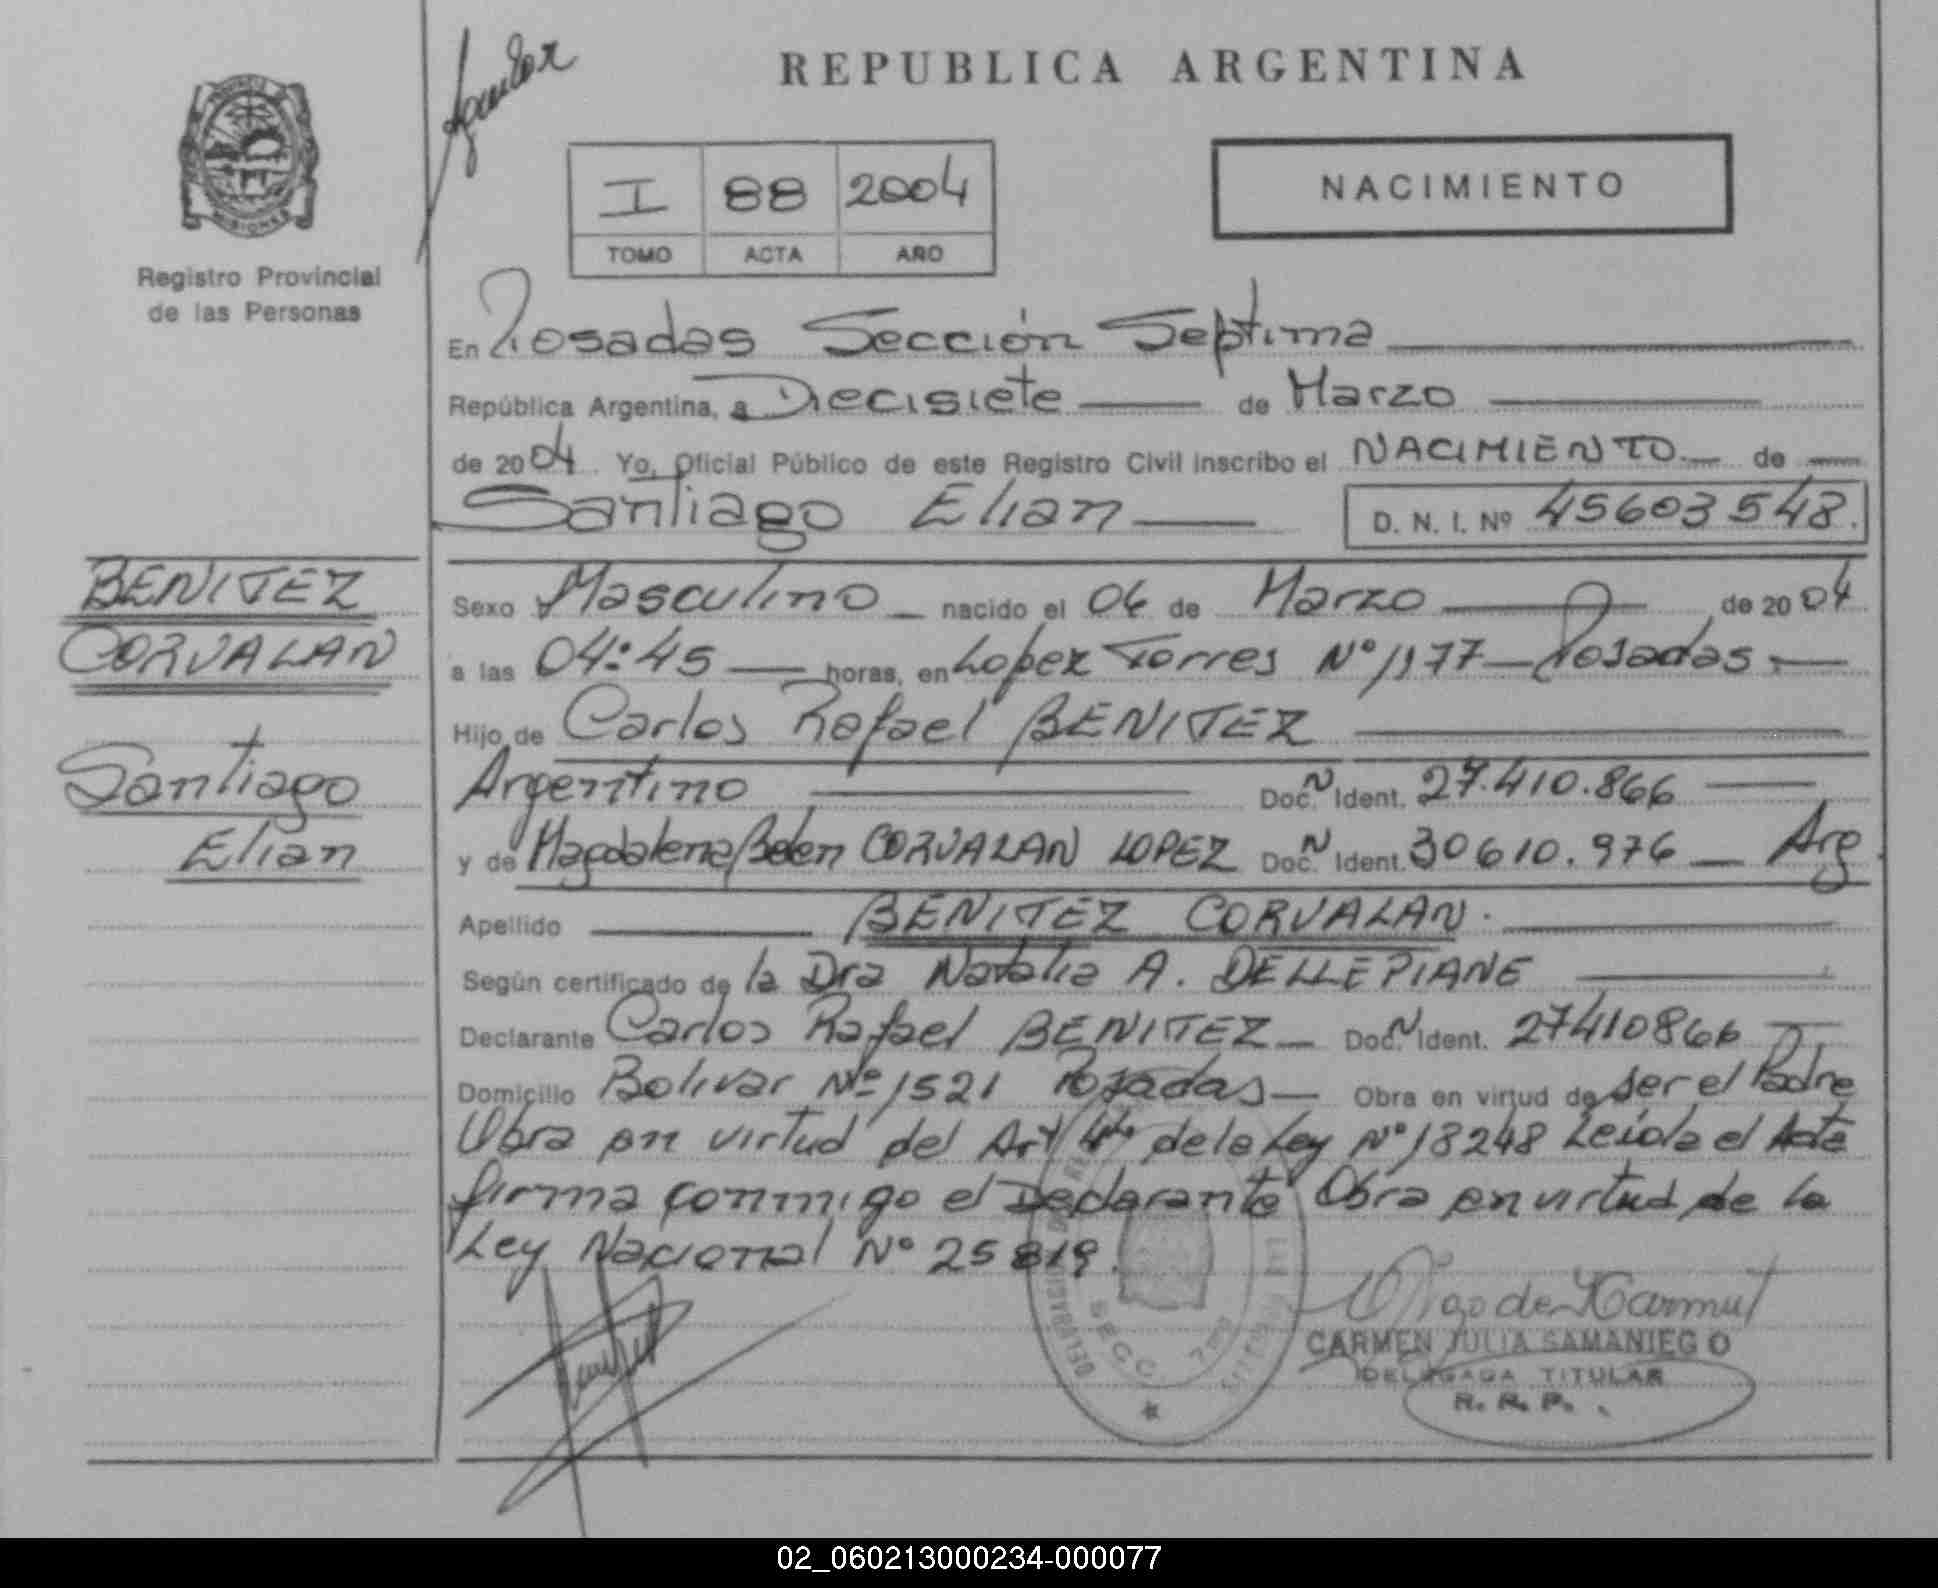 REPUBLICA ARGENTINA
MISIONES
Registro Provincial
de las Personas
I 88 2004
TOMO ACTA AÑO
NACIMIENTO
En Posadas Sección Septima
República Argentina, a Diecisiete de Marzo
de 2004 Yo, Oficial Público de este Registro Civil inscribo el NACIMIENTO de
Santiago Elian D. N. I. Nº 45603548.
BENITEZ
CORVALAN
Santiago
Elian
Sexo Masculino nacido el 06 de Marzo de 2004
a las 04:45 horas, en Lopez Torres Nº 1177 Posadas.
Hijo de Carlos Rafael BENITEZ
Argentino Doc. N Ident. 27.410.866
y de Magdalena Belen CORVALAN LOPEZ Doc. N Ident. 30610.976 Arg
Apellido BENITEZ CORVALAN.
Según certificado de la Dra Natalia A. DELLEPIANE
Declarante Carlos Rafael BENITEZ Doc. N Ident. 27410866
Domicilio Bolivar Nº 1521 Posadas Obra en virtud de ser el Padre
Obra en virtud del Art 4to de la Ley Nº 18248 Leida el Acta
firma conmigo el Declarante Obra en virtud de la
Ley Nacional Nº 25819.
SECC. 7ma
CARMEN JULIA SAMANIEGO
DELEGADA TITULAR
R. R. P.
02_060213000234-000077